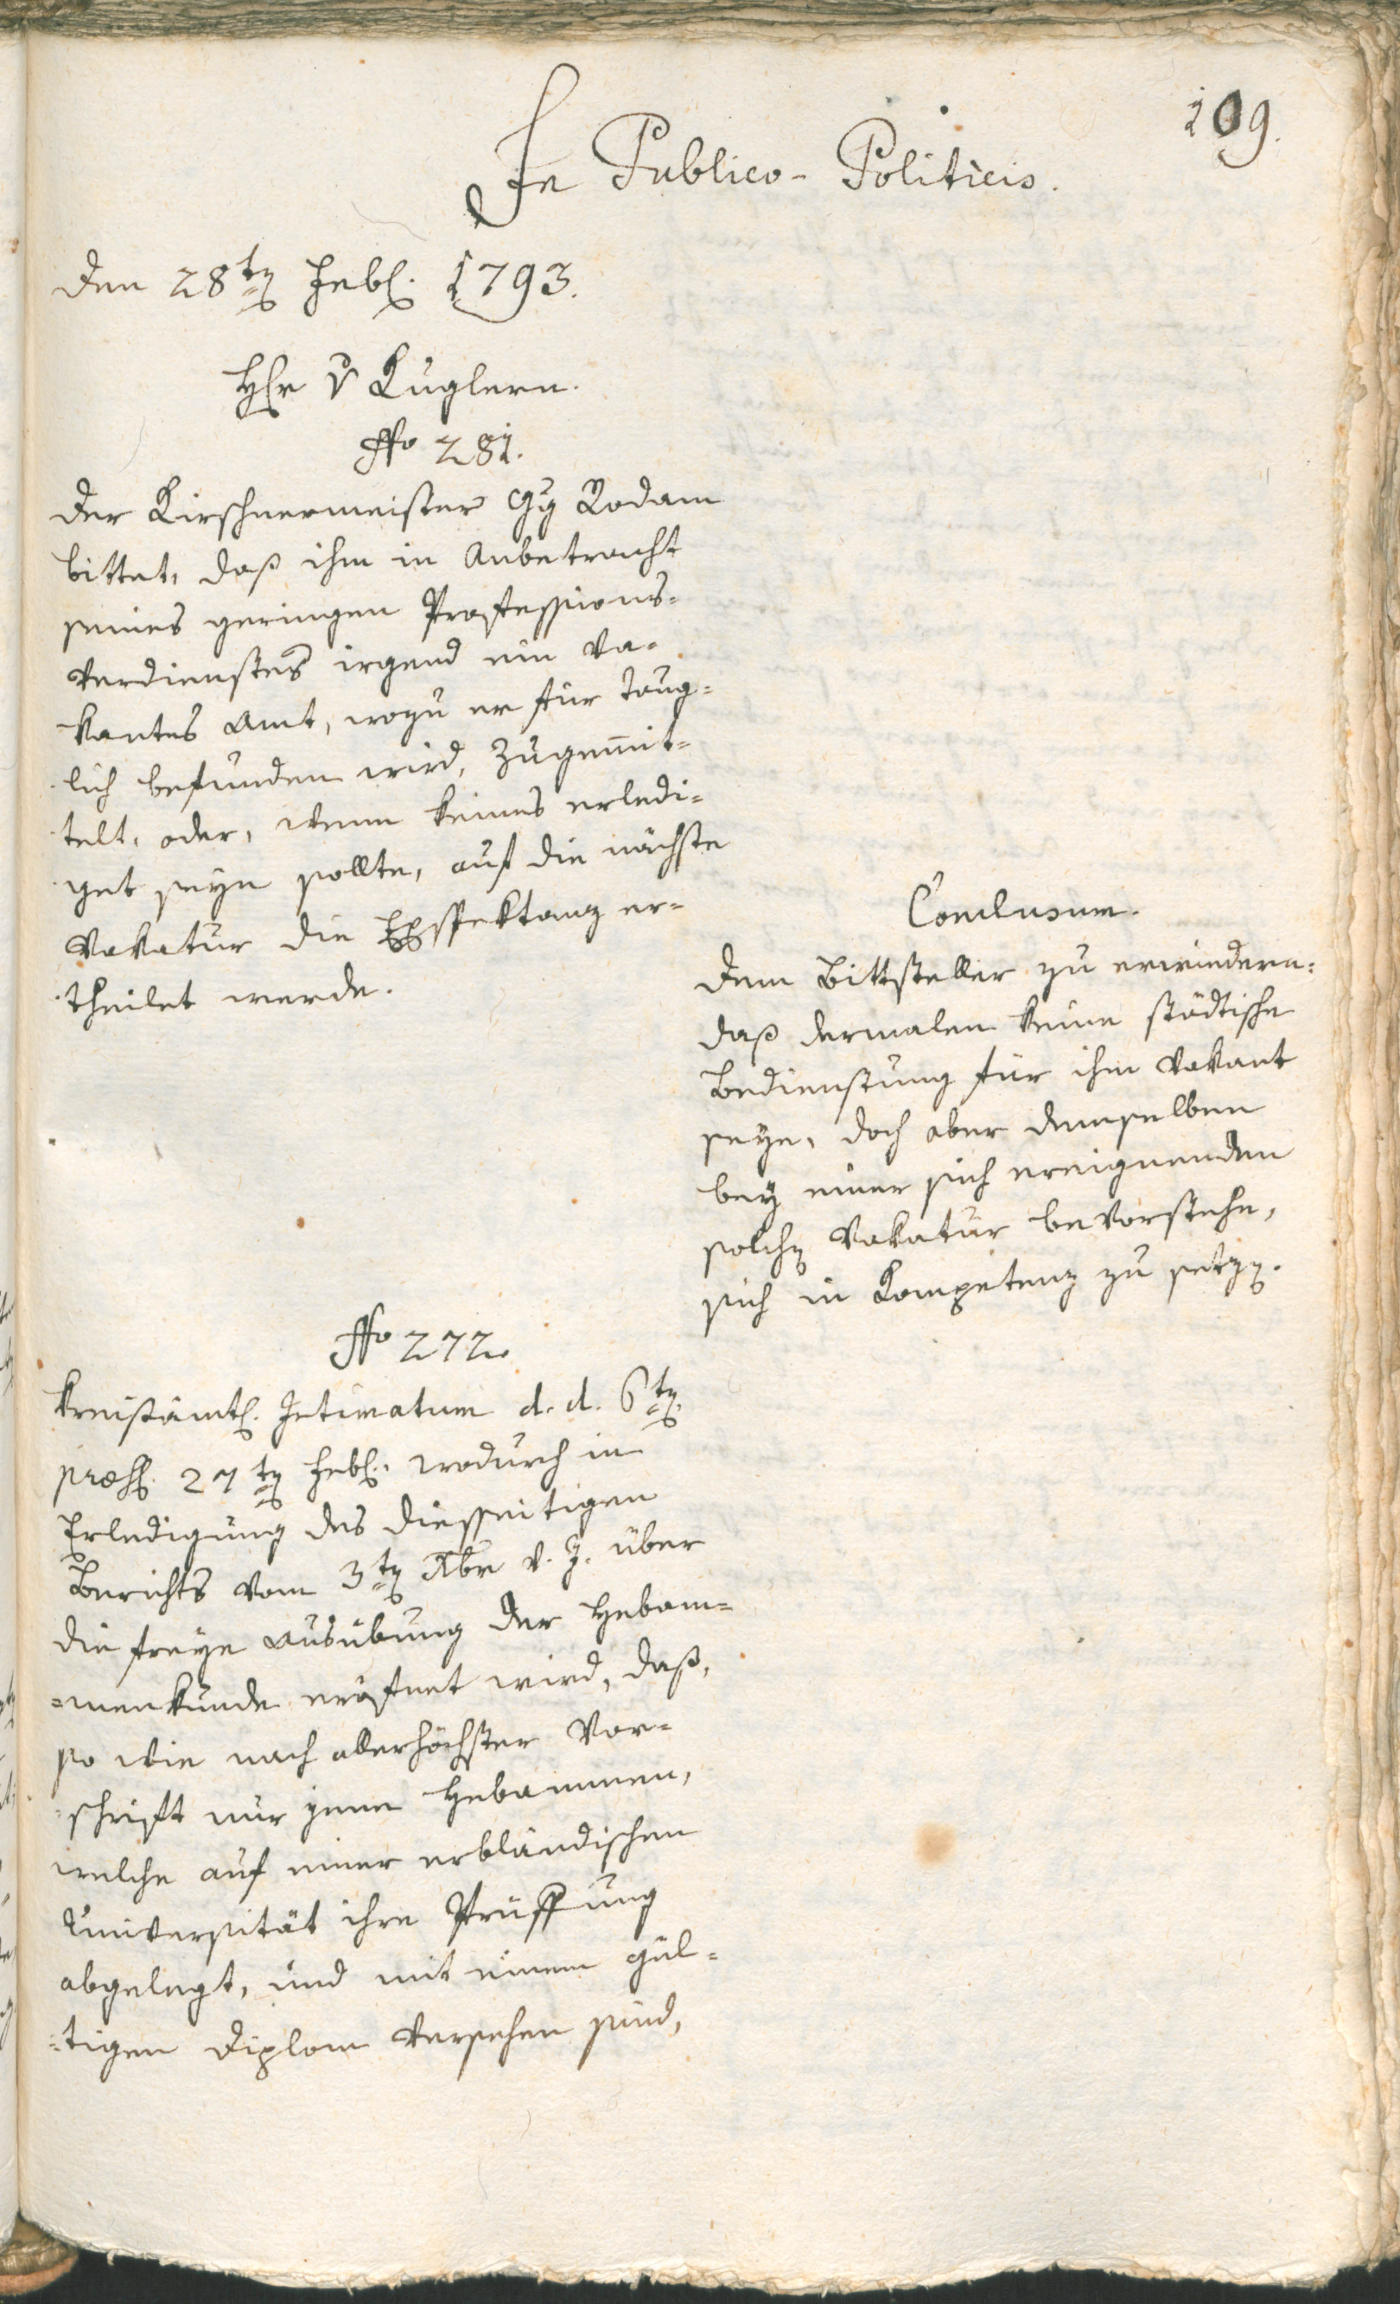 109.
In Publico-Politicis.
Den 28ten Febr. 1793.
Hr v Kuglern.
No 281.
Der Kirschnermeister Gg Rodam
bittet, daß ihm in Anbetracht
seines geringen Professions-
verdienstes irgend ein va-
kantes Amt, wozu er für taug-
lich befunden wird, zugemit-
telt, oder, wenn keines erledi-
get seyn sollte, auf die nächste
Vakatur die Exspektanz er-
theilet werde.
Conclusum.
Dem Bittsteller zu erwiedern:
daß dermalen keine städtische
Bedienstung für ihm vakant
seye, doch aber demselben
bey einer sich ereignenden
solchen Vakatur bevorstehe,
sich in Kompetenz zu setzen.
No 272.
Kreisämtl. Intimatum d. d. 6ten
præs. 27ten Febr. wodurch in
Erledigung des diesseitigen
Berichts vom 3ten Xbr v. J. über
die freye Ausübung der Hebam-
=menkunde eröfnet wird, daß,
so wie nach allerhöchster Vor-
schrift nur jene Hebammen,
welche auf einer erbländischen
Universität ihre Prüffung
abgelegt, und mit einem gül-
=tigen Diplom versehen sind,